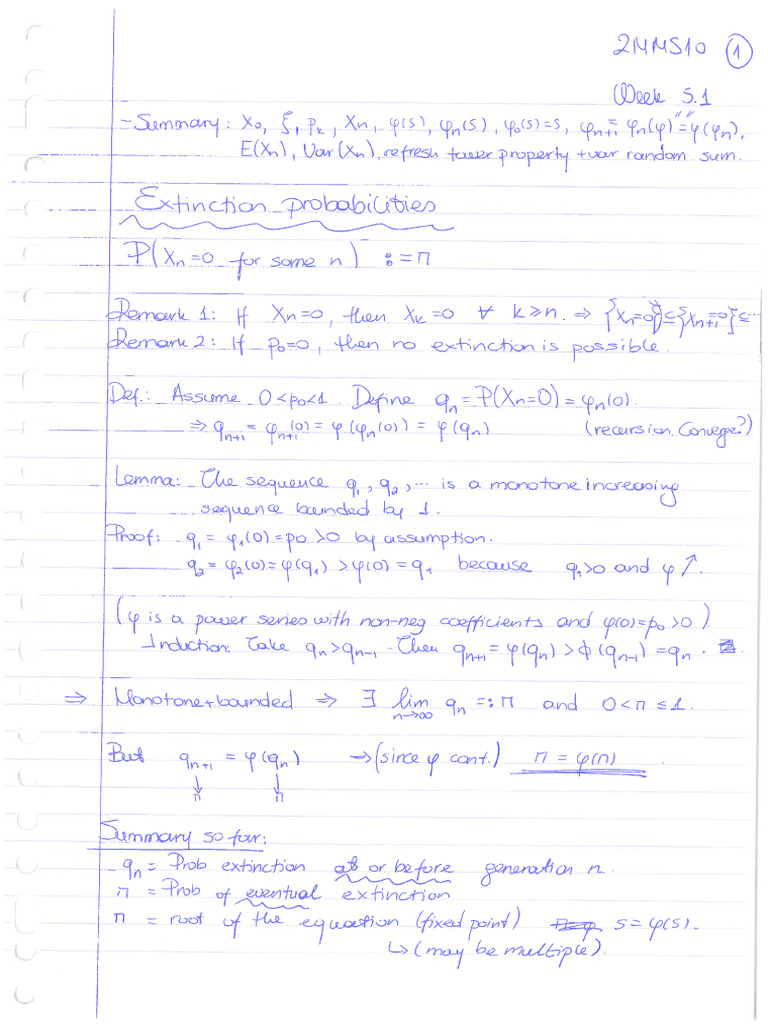 2MMS10 ①
Week 5.1
- Summary: X₀, ξ, pₖ, Xₙ, φ(s), φₙ(s), φ₀(s)=s, φₙ₊₁ = φₙ(φ) "=" φ(φₙ),
E(Xₙ), Var(Xₙ), refresh tower property + var random sum.
Extinction probabilities
P(Xₙ=0 for some n) := π
Remark 1: If Xₙ=0, then Xₖ=0 ∀ k≥n. ⇒ {Xₙ=0}⊆{Xₙ₊₁=0}⊆...
Remark 2: If p₀=0, then no extinction is possible.
Def.: Assume 0<p₀<1. Define qₙ = P(Xₙ=0) = φₙ(0).
⇒ qₙ₊₁ = φₙ₊₁(0) = φ(φₙ(0)) = φ(qₙ) (recursion. Converge?)
Lemma: The sequence q₁, q₂, ... is a monotone increasing
sequence bounded by 1.
Proof: q₁ = φ₁(0) = p₀ > 0 by assumption.
q₂ = φ₂(0) = φ(q₁) > φ(0) = q₁ because q₁>0 and φ ↗.
(φ is a power series with non-neg coefficients and φ(0)=p₀>0)
Induction: Take qₙ>qₙ₋₁. Then qₙ₊₁ = φ(qₙ) > ϕ(qₙ₋₁) = qₙ.
⇒ Monotone + bounded ⇒ ∃ lim qₙ =: π and 0<π≤1.
n→∞
But qₙ₊₁ = φ(qₙ) → (since φ cont.) π = φ(π)
↓ ↓
π π
Summary so far:
qₙ = Prob extinction at or before generation n.
π = Prob of eventual extinction
π = root of the equation (fixed point) s = φ(s).
↳ (may be multiple).